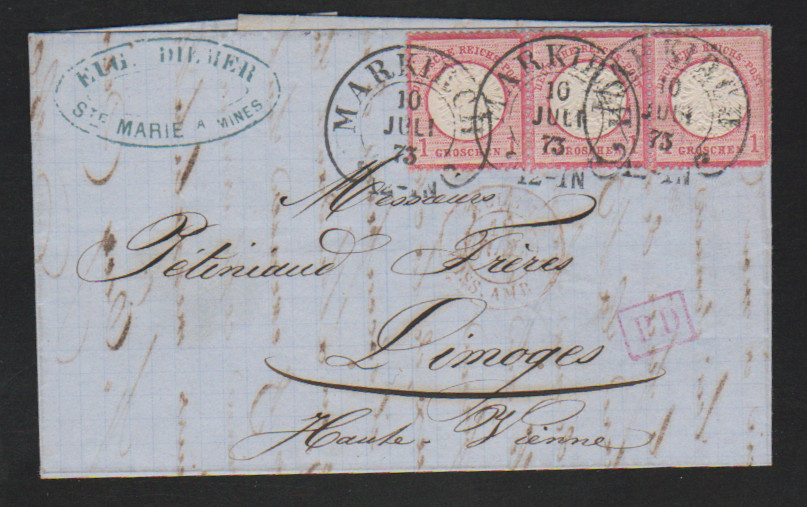 EUG. DIEHER
STE MARIE A MINES
REICHS-POST
1 GROSCHEN 1
MARKIRCH
10
JULI
73
12-1N
DEUTSCHE REICHS-POST
GROSCHEN
MARKIRCH
10
JULI
73
12-1N
DEUTSCHE REICHS-POST
GROSCHEN 1
MARKIRCH
10
JULI
73
1N
AMB
Messieurs
Pétiniaud Frères
Limoges
Haute-Vienne
P.D